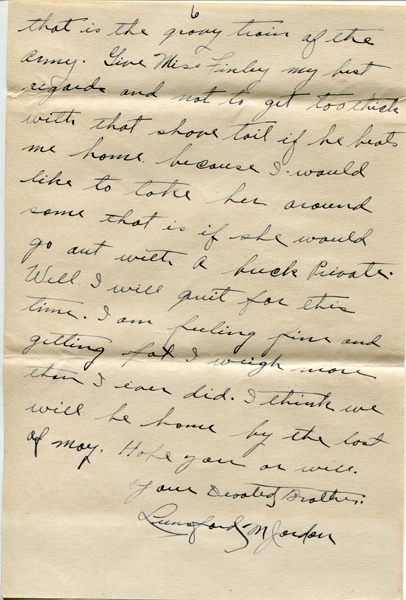 6
that is the gravy train of the
Army. Give Miss Finley my best
regards and not to get too thick
with that shove tail if he beats
me home. because I would
like to take her around
some that is if she would
go out with a buck Private.
Well I will quit for this
time. I am feeling fine and
getting fat I weigh more
than I ever did. I think we
will be home by the last
of may. Hope you or will.
Your Devoted Brother.
Lunsford M Jordon